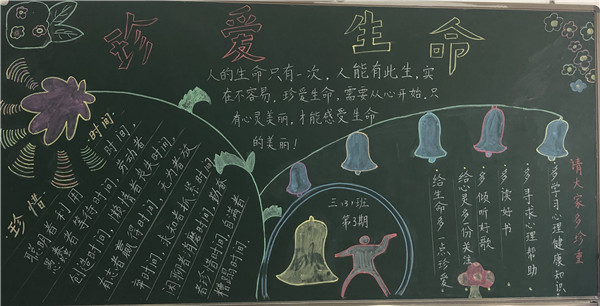 珍爱生命
人的生命只有一次，人能有此生，实
在不容易，珍爱生命，需要从心开始，只
有心灵美丽，才能感受生命
的美丽！
·珍惜时间·
聪明者利用时间，劳动者
创造时间，懒惰者丧失时间，
愚蠢者等待时间，
有志者赢得时间，无为者放
弃时间，求知者抓紧时间
闲聊者消磨时间，勤奋
者珍惜时间，自满者
糟蹋时间
三(3)班
第3期
请大家多珍重
·多学习心理健康知识
·多寻求心理帮助
·多读好书
·多倾听好歌
·给心灵多份关注
·给生命多一点珍爱